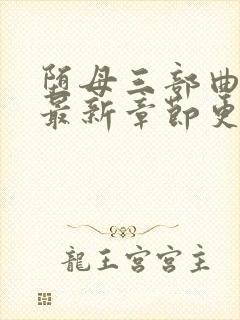 堕母三部曲
最新章节更
龍王宫宫主